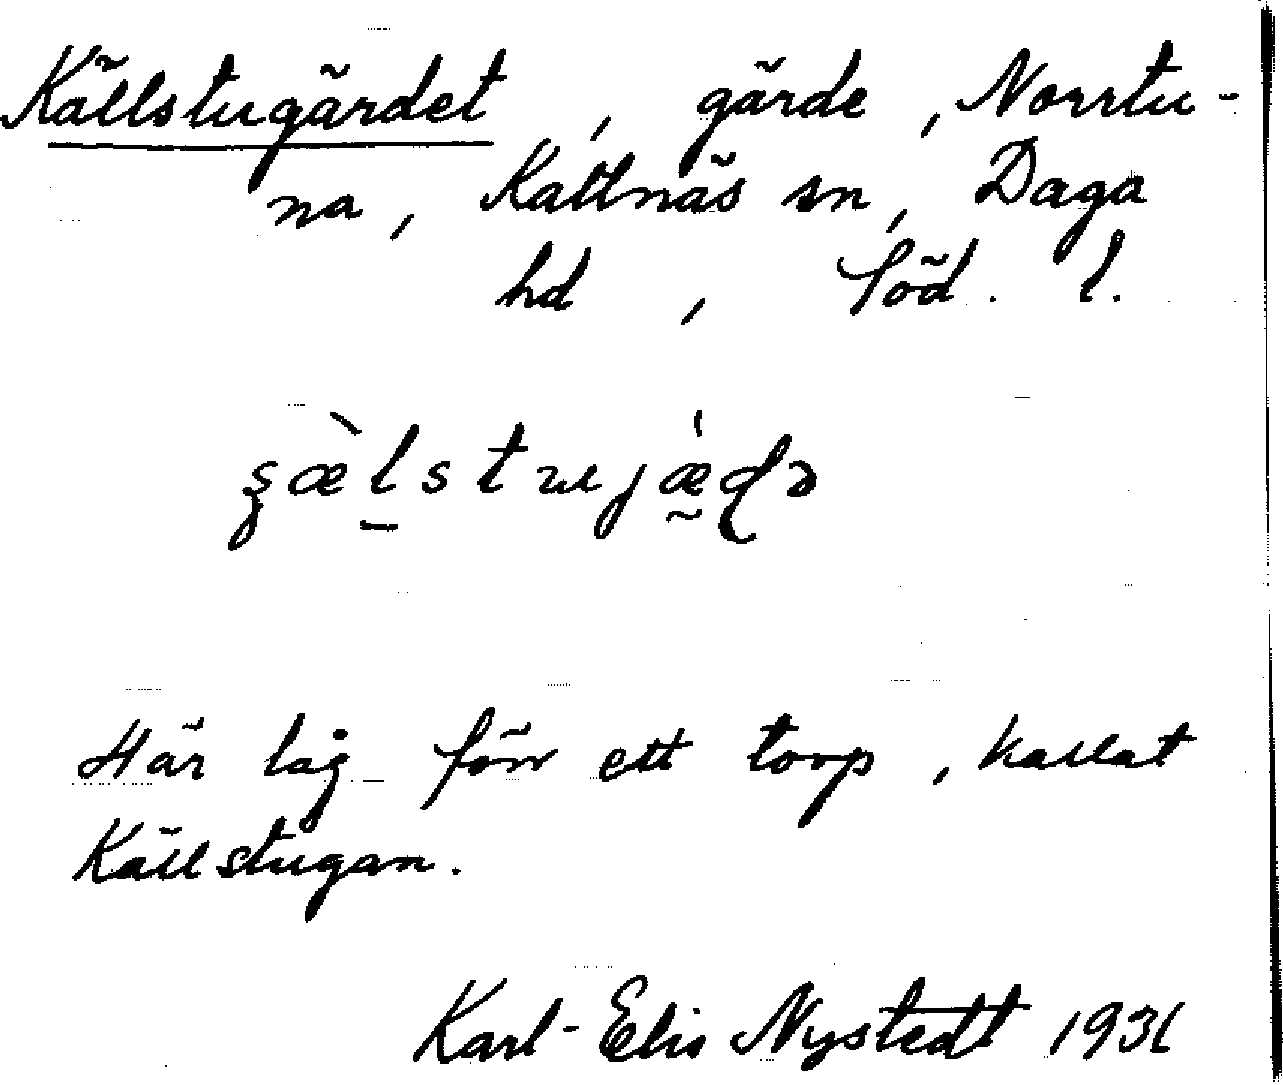 Källstugärdet, gärde, Norrtu-
na, Kattnäs sn, Daga
hd, Söd. l.
Här låg förr ett torp, kallat
Källstugan.
Karl-Elis Nystedt 1931